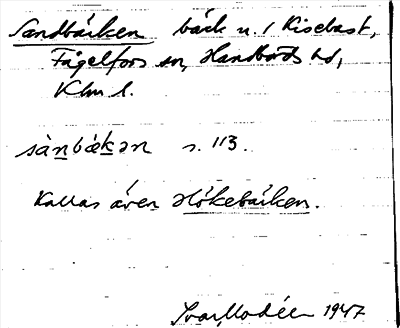 Sandbäcken bäck n. / Kisebast,
Fågelfors sn, Handbörds hd,
Klm l.
sànbækən s. 113.
Kallas även Hökebäcken.
Ivar Modéer 1947